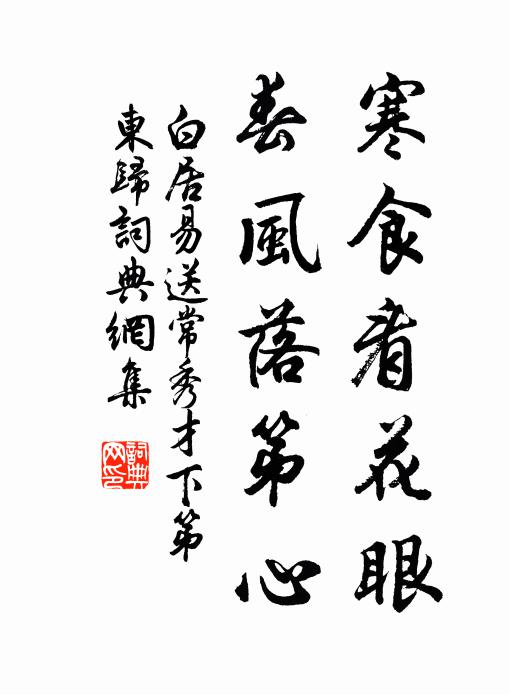 寒食看花眼
春風落第心
白居易送常秀才下第
東歸詞典網集
詞典
网印